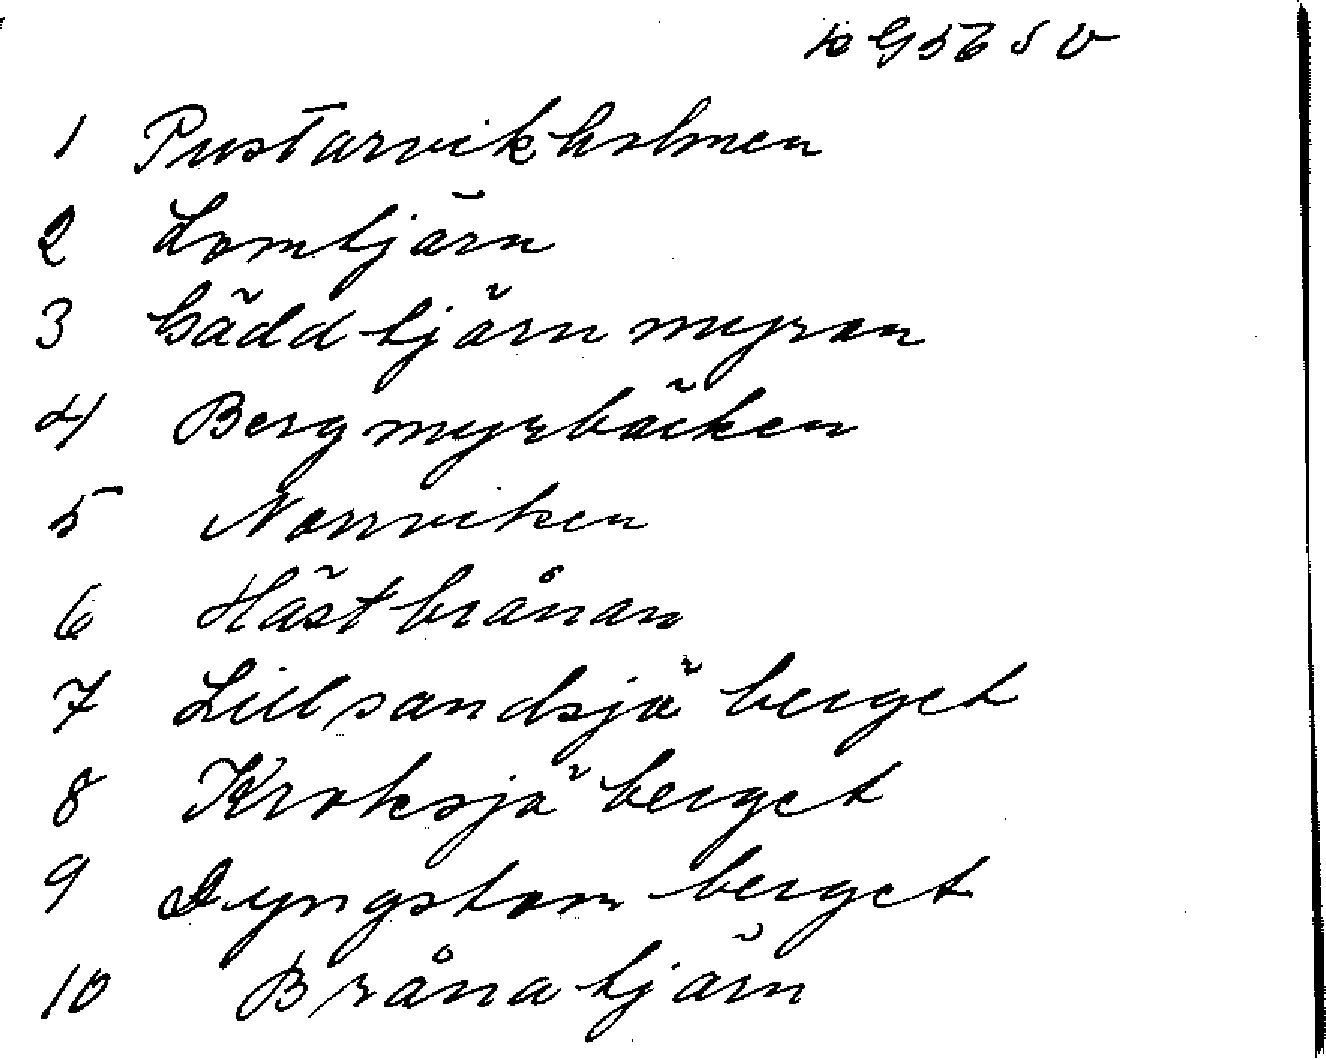 10 G 5 6 S V
1 Pustarvikholmen
2 Lomtjärn
3 Gäddtjärnmyran
4 Bergmyrbäcken
5 Norrviken
6 Hästbrånan
7 Lillsandsjöberget
8 Kroksjöberget
9 Dyngstomberget
10 Brånatjärn